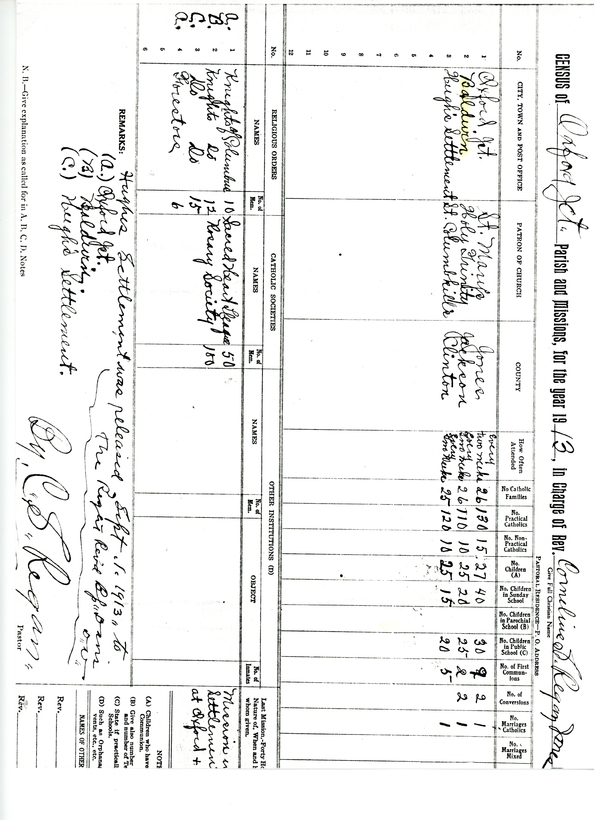 CENSUS of Oxford Jct. Parish and Missions, for the year 1913, in Charge of Rev. Cornelius S. Regan
Give Full Christian Name
PASTORAL RESIDENCE—P. O. ADDRESS
No. CITY, TOWN AND POST OFFICE PATRON OF CHURCH COUNTY How Often Attended No Catholic Families No. Practical Catholics No. Non-Practical Catholics No. Children (A) No. Children in Sunday School No. Children in Parochial School (B) No. Children in Public School (C) No. of First Communions No. of Conversions No. Marriages Catholics No. Marriages Mixed
1 Oxford Jct. St. Mary's Jones Every two weeks 26 130 15 27 40 30 9 2 1
2 Baldwin Holy Trinity Jackson Every two weeks 26 110 10 25 20 25 2 2 1
3 Hugh's Settlement St. Columbkille Clinton Every two weeks 25 120 10 25 15 20 5 1
4
5
6
7
8
9
10
11
12
No. RELIGIOUS ORDERS CATHOLIC SOCIETIES OTHER INSTITUTIONS (D) Last Mission,
NAMES No. of Mem. NAMES No. of Mem. NAMES No. of Mem. OBJECT No. of Inmates Nature of, When and whom given.
a. 1 Knights of Columbus 10 Sacred Heart League 50 Mission in
B. 2 Knights Do 12 Rosary Society 100 Settlement
C. 3 Do Do 15 at Oxford +
a. 4 Foresters 6
5
6
REMARKS: Hughs Settlement was released Sept. 1. 1913, to
The Right Revd Bp. Davis
(a.) Oxford Jct.
(B) Baldwin.
(C.) Hugh's Settlement.
By C. S. Regan.
Pastor
N. B.—Give explanation as called for in A, B, C, D, Notes
(A) Children who have
Communion.
(B) Give also number
and number of
(C) State if
Schools.
(D) Such as
vents, etc., etc.
NAMES OF OTHER
Rev.
Rev.
Rev.